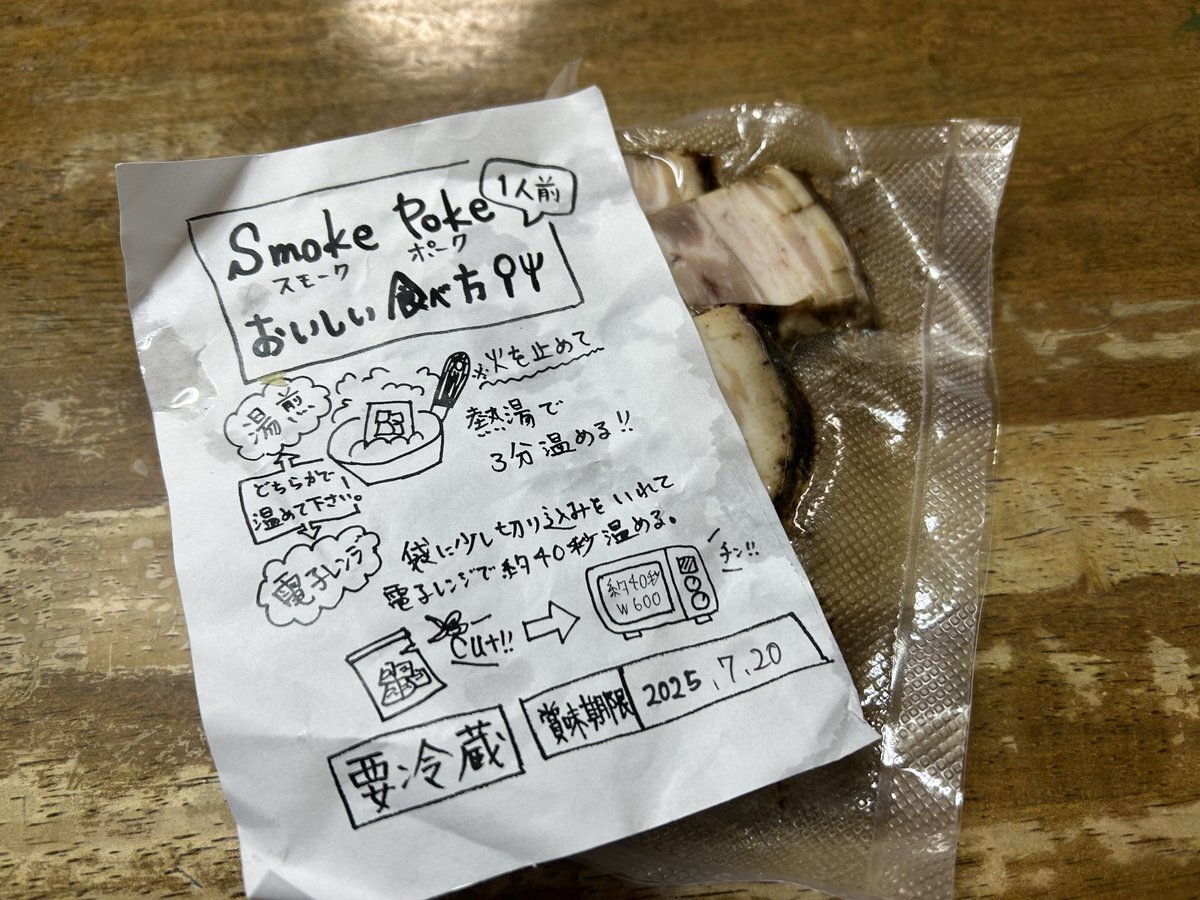 1人前
Smoke Poke
スモーク ポーク
おいしい食べ方
湯煎
※火を止めて
熱湯で
3分温める!!
どちらかで
温めて下さい。
電子レンジ
袋に少し切り込みをいれて
電子レンジで約40秒温める。
cut!!
約40秒
W600
チン!!
賞味期限 2025.7.20
要冷蔵